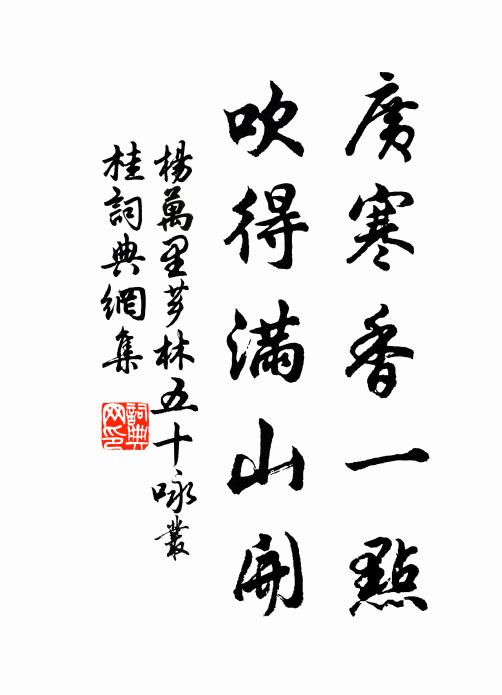 廣寒香一點
吹得滿山開
楊萬里芗林五十咏叢
桂詞典網集
詞典网印